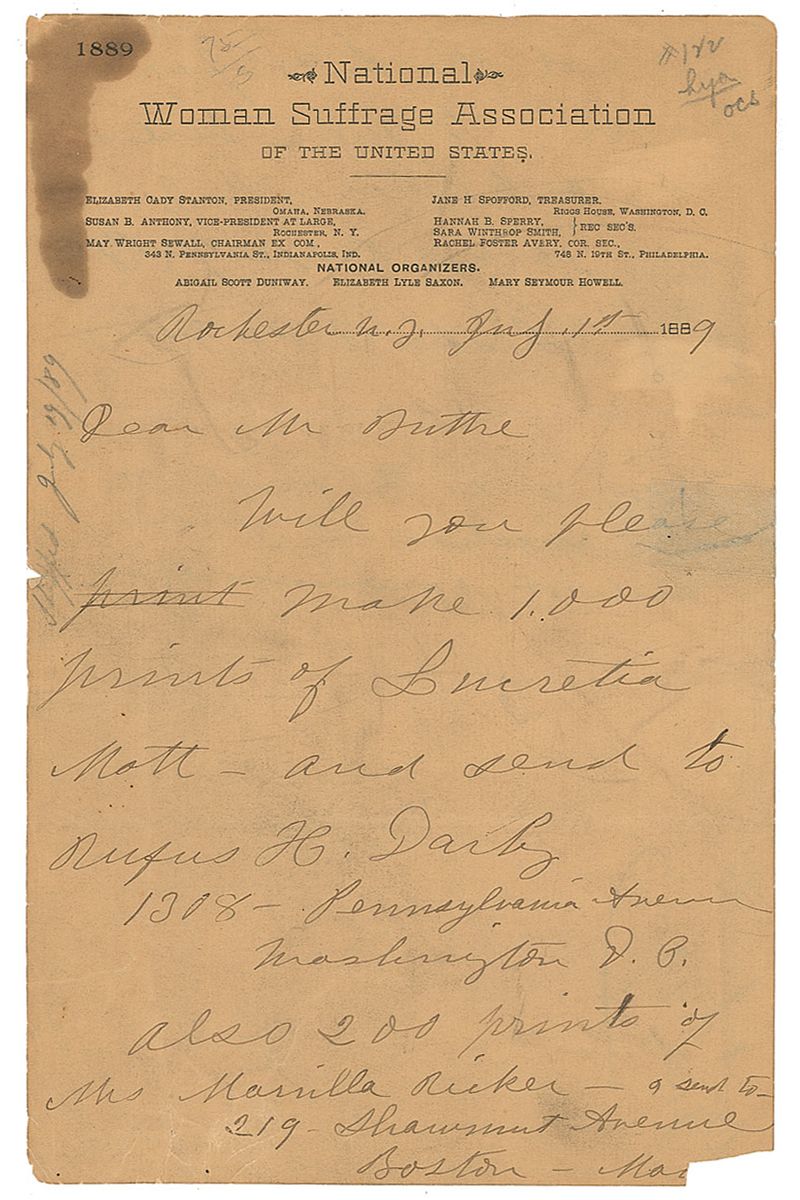 1889
National
Woman Suffrage Association
OF THE UNITED STATES.
ELIZABETH CADY STANTON, PRESIDENT,
OMAHA, NEBRASKA.
SUSAN B. ANTHONY, VICE-PRESIDENT AT LARGE,
ROCHESTER, N. Y.
MAY WRIGHT SEWALL, CHAIRMAN EX COM,
343 N. PENNSYLVANIA ST., INDIANAPOLIS, IND.
JANE H SPOFFORD, TREASURER.
RIGGS HOUSE, WASHINGTON, D. C.
HANNAH B. SPERRY,
SARA WINTHROP SMITH, } REC SEC'S.
RACHEL FOSTER AVERY, COR. SEC.,
748 N. 19TH ST., PHILADELPHIA.
NATIONAL ORGANIZERS.
ABIGAIL SCOTT DUNIWAY. ELIZABETH LYLE SAXON. MARY SEYMOUR HOWELL.
Rochester N.Y. July 1st 1889
Dear Mr Buttre
Will you please
print make 1.000
prints of Lucretia
Mott - and send to
Rufus H. Darby
1308 - Pennsylvania Avenue
Washington D. C.
also 200 prints of
Mrs Marilla Ricker - & send to -
219 - Shawmut Avenue
Boston - Mas
July 19/89